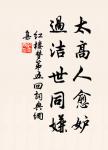 太高人愈妒
過洁世同嫌
紅樓夢第五回詞典網